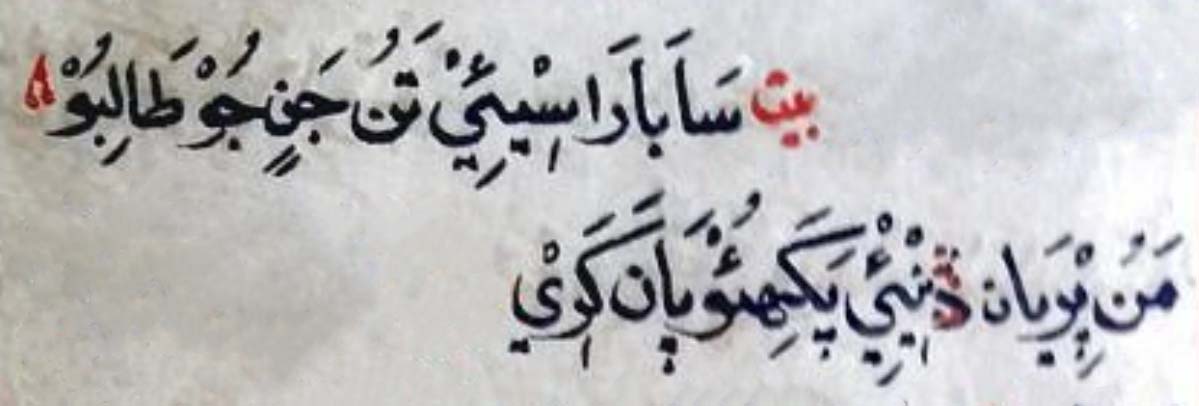 بيت سَاَبَارَا سِيْئِيْ تَنُ جَنِ جُوْ طَالِبُوْ
مَنُ پِرْيَان ڏِنْيِيْ پَکِهِئُوْ پَاَن کَرِيْ